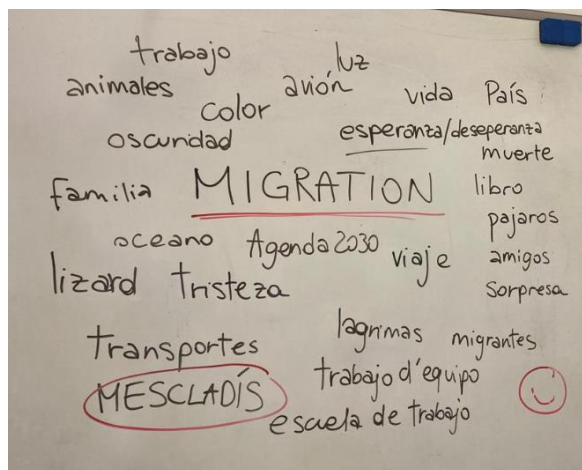 trabajo luz
animales avión
color vida País
oscuridad esperanza/deseperanza
muerte
familia MIGRATION libro
pajaros
oceano Agenda 2030 viaje amigos
lizard tristeza sorpresa
lagrimas migrantes
transportes
trabajo d'equipo
MESCLADÍS
escuela de trabajo